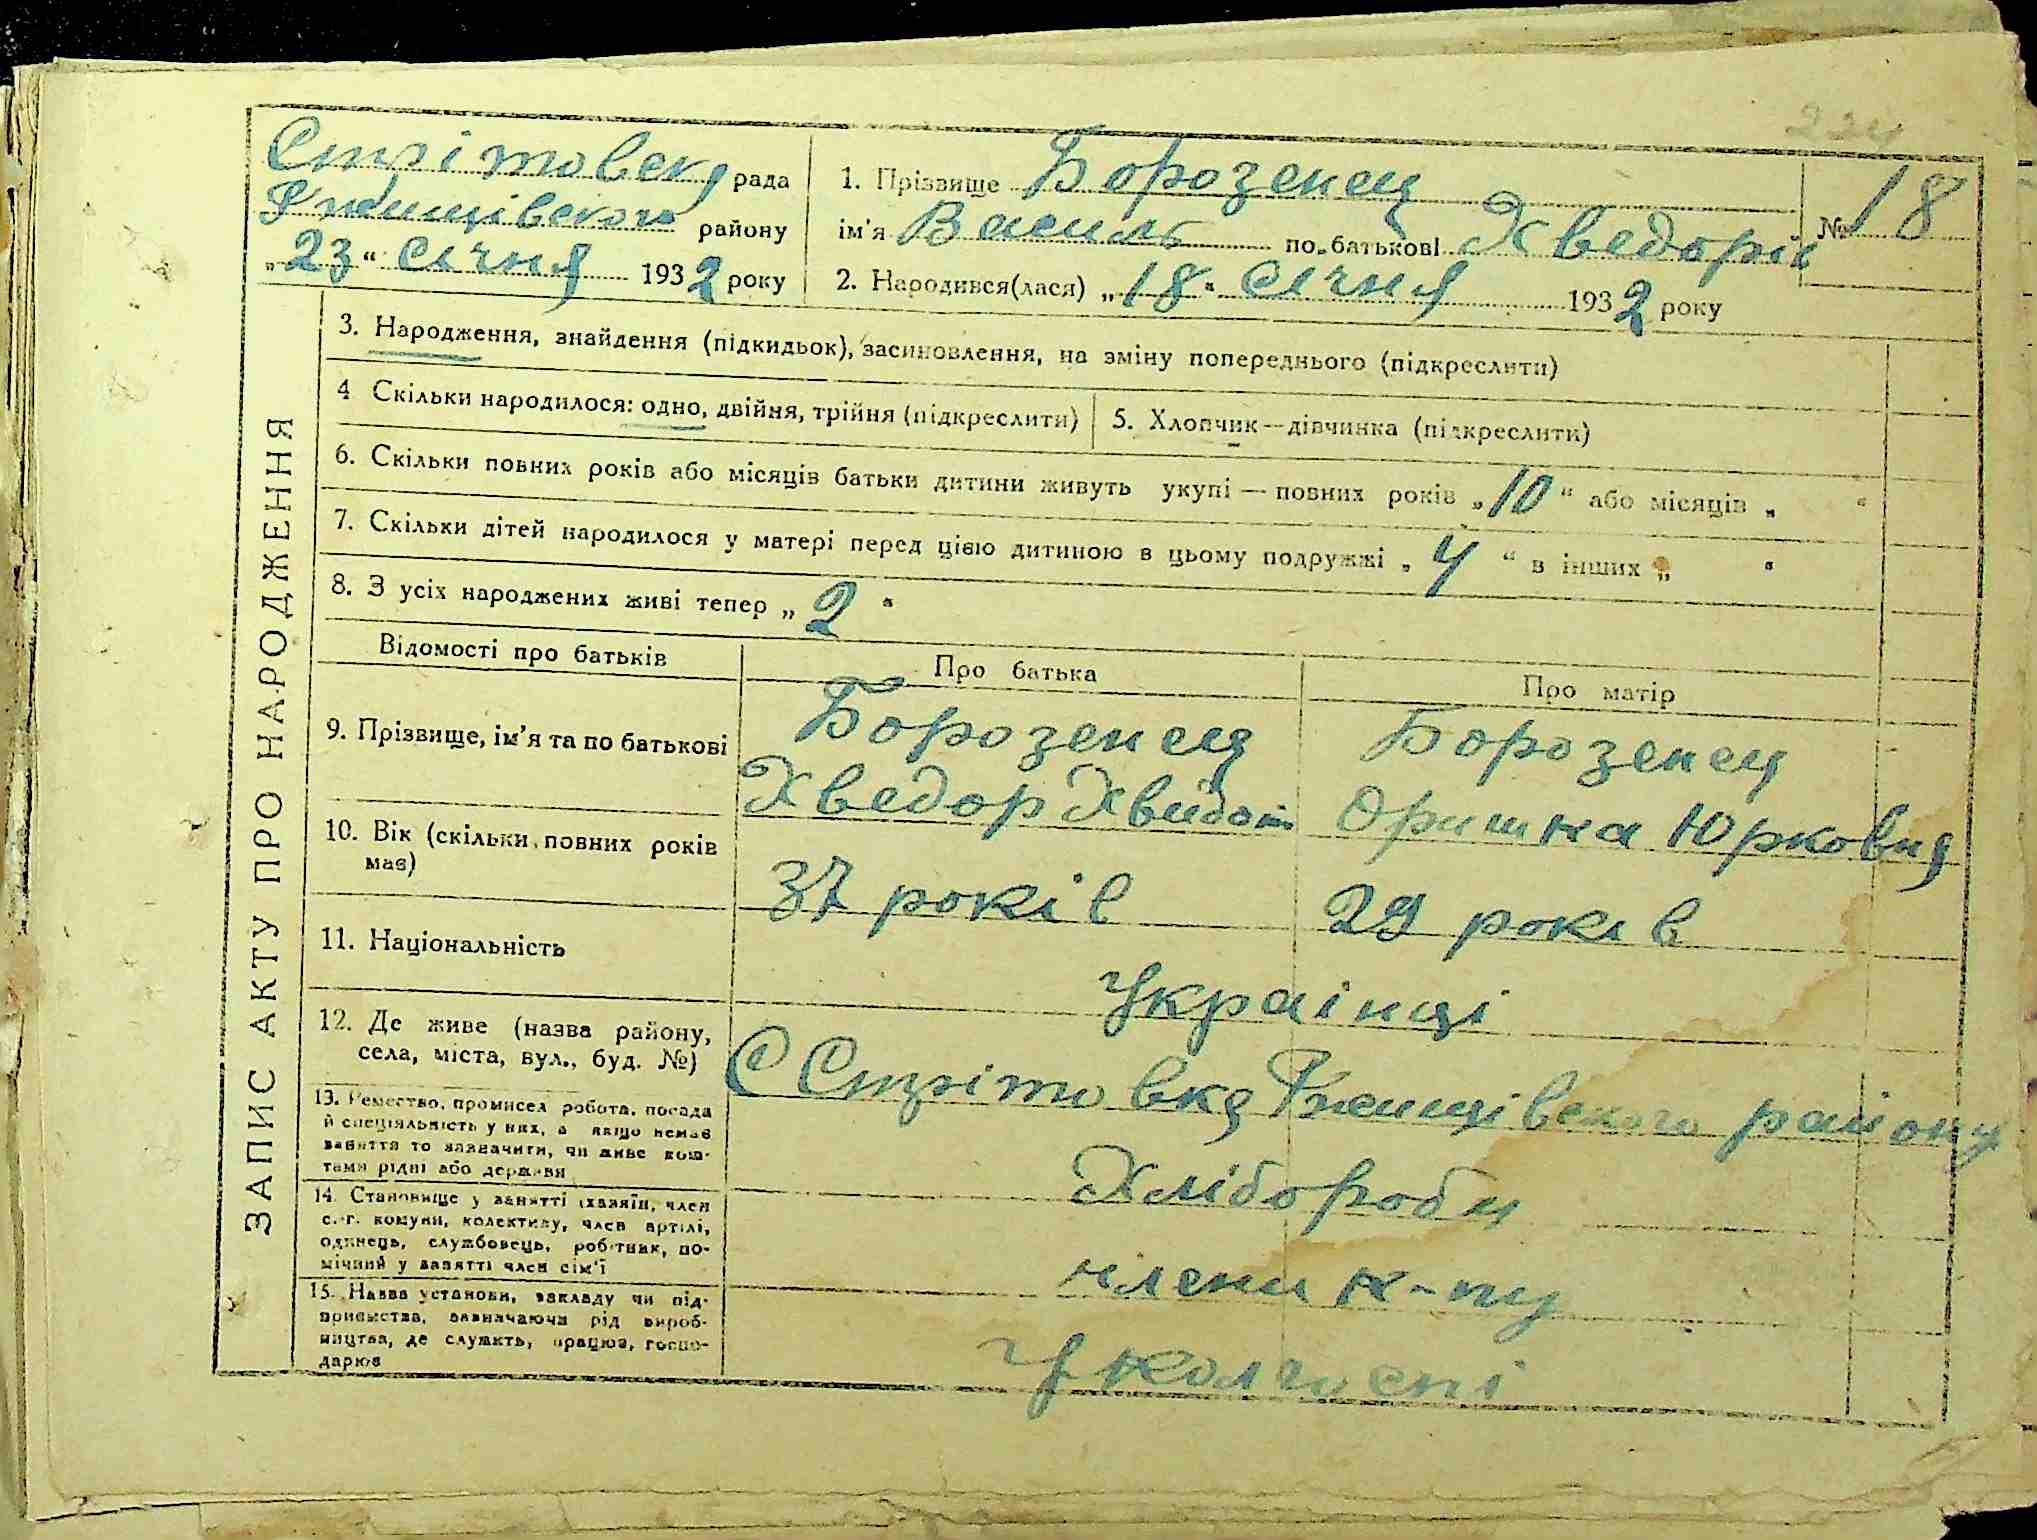 224
Стрітовск рада
Ржищівського району
„23“ січня 1932 року
1. Прізвище Борозенец
ім'я Василь по-батькові Хведорів
№ 18
2. Народився(лася) „18“ січня 1932 року
ЗАПИС АКТУ ПРО НАРОДЖЕННЯ
3. Народження, знайдення (підкидьок), засиновлення, на зміну попереднього (підкреслити)
4 Скільки народилося: одно, двійня, трійня (підкреслити)
5. Хлопчик—дівчинка (підкреслити)
6. Скільки повних років або місяців батьки дитини живуть укупі — повних років „10“ або місяців „ “
7. Скільки дітей народилося у матері перед цією дитиною в цьому подружжі „4“ в інших „ “
8. З усіх народжених живі тепер „2“
Відомості про батьків
Про батька
Про матір
9. Прізвище, ім'я та по батькові
Борозенец
Хведор
Борозенец
Оришка Юрковня
10. Вік (скільки повних років
має)
37 років
29 років
11. Національність
Українці
12. Де живе (назва району,
села, міста, вул., буд. №)
С Стрітовка Ржищівского району
13. Ремество, промисел робота, посада
й спеціяльність у них, а якщо немає
заняття то зазначити, чи живе кош-
тами рідні або держави
Хлібороби
14. Становище у занятті (хазяїн, член
с.-г. комуни, колективу, член артілі,
одинець, службовець, робітник, по-
мічний у занятті член сім'ї
члени к-ту
15. Назва установи, закладу чи під-
приємства, зазначаючи рід вироб-
ництва, де служить, працює, госпо-
дарює
У колгоспі